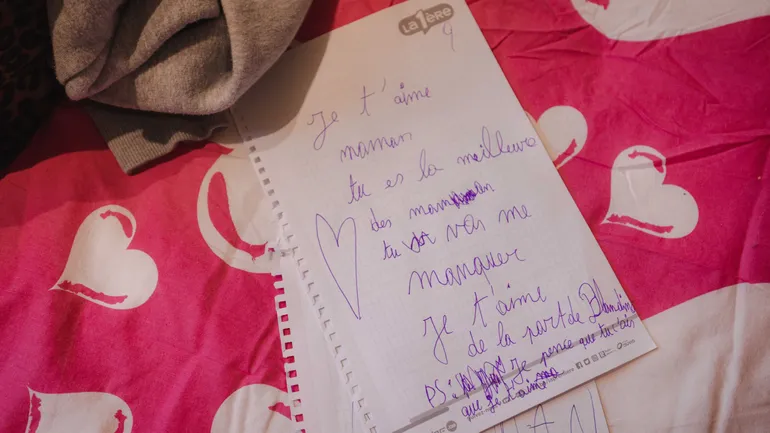 LA 1ère
Je t'aime
maman
tu es la meilleure
des maman
tu vas me
manquer
Je t'aime
de la part de Blandine
PS: Je pence que tu sais
que je t'aime